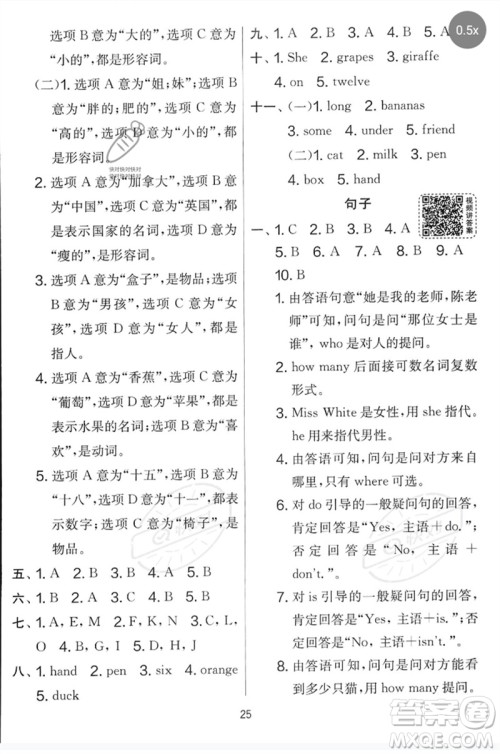 意为“大的”，选项 C 意为
“小的”，都是形容词。
(二)1. 选项 A 意为“姐;妹”;选项 B
意为“胖的;肥的”,选项 C 意为
“高的”,选项 D 意为“小的”,都
是形容词。
2. 选项 A 意为“加拿大”,选项 B
意为“中国”,选项 C 意为“英国”,
都是表示国家的名词;选项 D 意为
“瘦的”,是形容词。
3. 选项 A 意为“盒子”,是物品;选项
B 意为“男孩”,选项 C 意为“女
孩”,选项 D 意为“女人”,都是
指人。
4. 选项 A 意为“香蕉”,选项 B 意为
“葡萄”,选项 D 意为“苹果”,都是
表示水果的名词;选项 C 意为“喜
欢”,是动词。
5. 选项 A 意为“十五”,选项 B 意为
“十八”,选项 D 意为“十一”,都
表示数字;选项 C 意为“椅子”,是
物品。
五、1. A 2. B 3. B 4. A 5. B
六、1. B 2. B 3. A 4. B 5. B
七、1. A、D、E、H 2. B、F、M 3. C、L、
O 4. I、J、N 5. G、K
八、1. hand 2. pen 3. six 4. orange
5. duck
九、1. B 2. A 3. B 4. A 5. B
十、1. She 2. grapes 3. giraffe
4. on 5. twelve
十一、(一)1. long 2. bananas
3. some 4. under 5. friend
(二)1. cat 2. milk 3. pen
4. box 5. hand
句子
视频讲答案
一、1. C 2. B 3. A 4. A
5. B 6. B 7. A 8. A 9. A
10. B
1. 由答语句意“她是我的老师,陈老
师”可知,问句是问“那位女士是
谁”,who 是对人的提问。
2. how many 后面接可数名词复数
形式。
3. Miss White 是女性,用 she 指代。
he 用来指代男性。
4. 由答语可知,问句是问对方来自
哪里,只有 where 可选。
5. 对 do 引导的一般疑问句的回答,
肯定回答是“Yes，主语＋do.”;
否定回答是“No，主语＋
don't.”。
6. 对 is 引导的一般疑问句的回答,
肯定回答是“Yes，主语＋is.”;否
定回答是“No,主语＋isn't.”。
7. 由答语可知,问句是问对方能看
到多少只猫,用 how many 提问。
25
0.5x